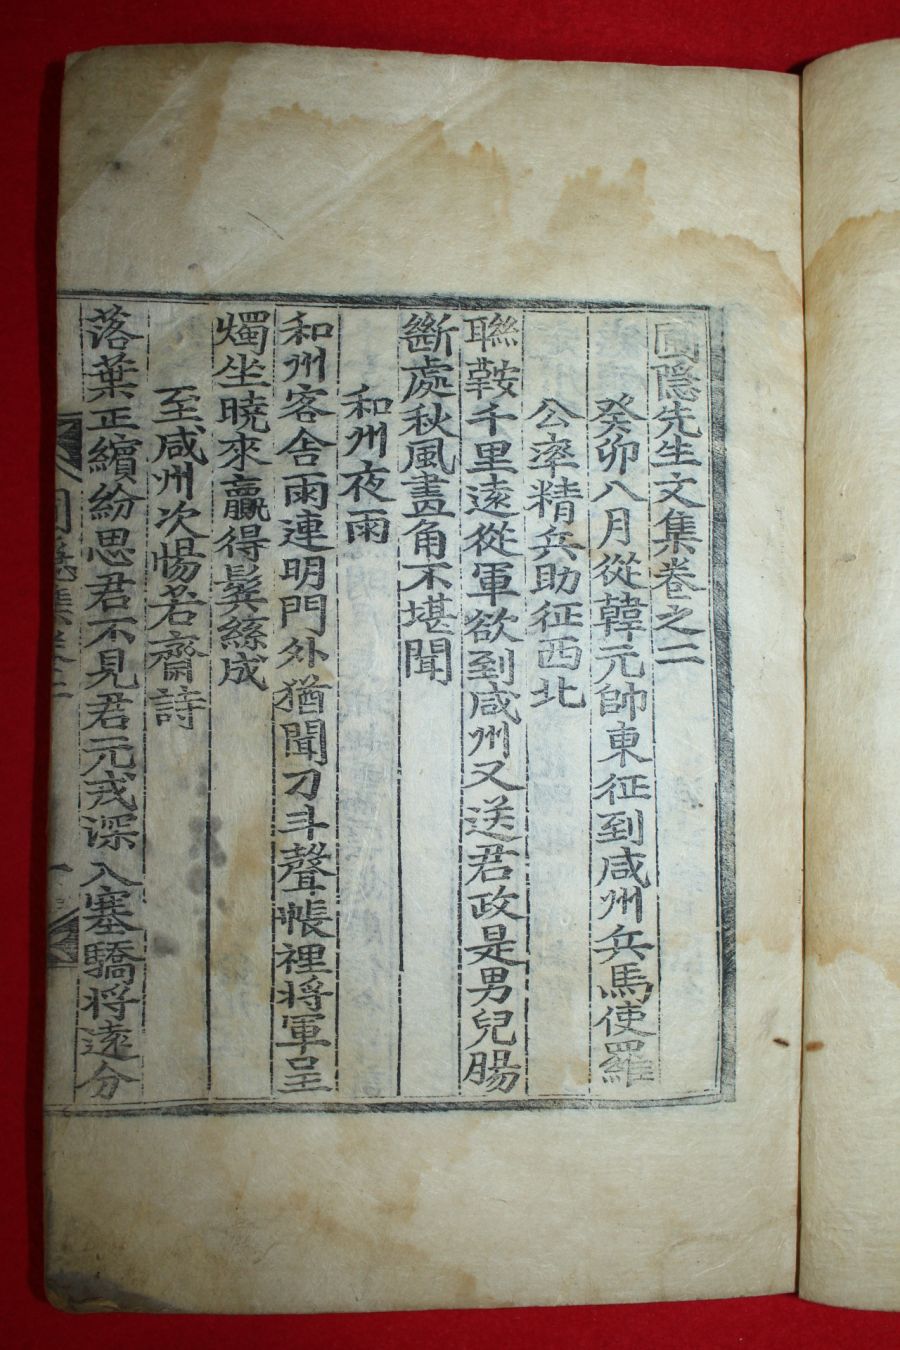 圃隱先生文集卷之二
癸卯八月從韓元帥東征到咸州兵馬使羅
公率精兵助征西北
聯鞍千里遠從軍欲到咸州又送君政是男兒腸
斷處秋風畫角不堪聞
和州夜雨
和州客舍雨連明門外猶聞刀斗聲帳裡將軍呈
燭坐曉來贏得鬂絲成
至咸州次惕若齋詩
落葉正繽紛思君不見君元戎深入塞驕將遠分